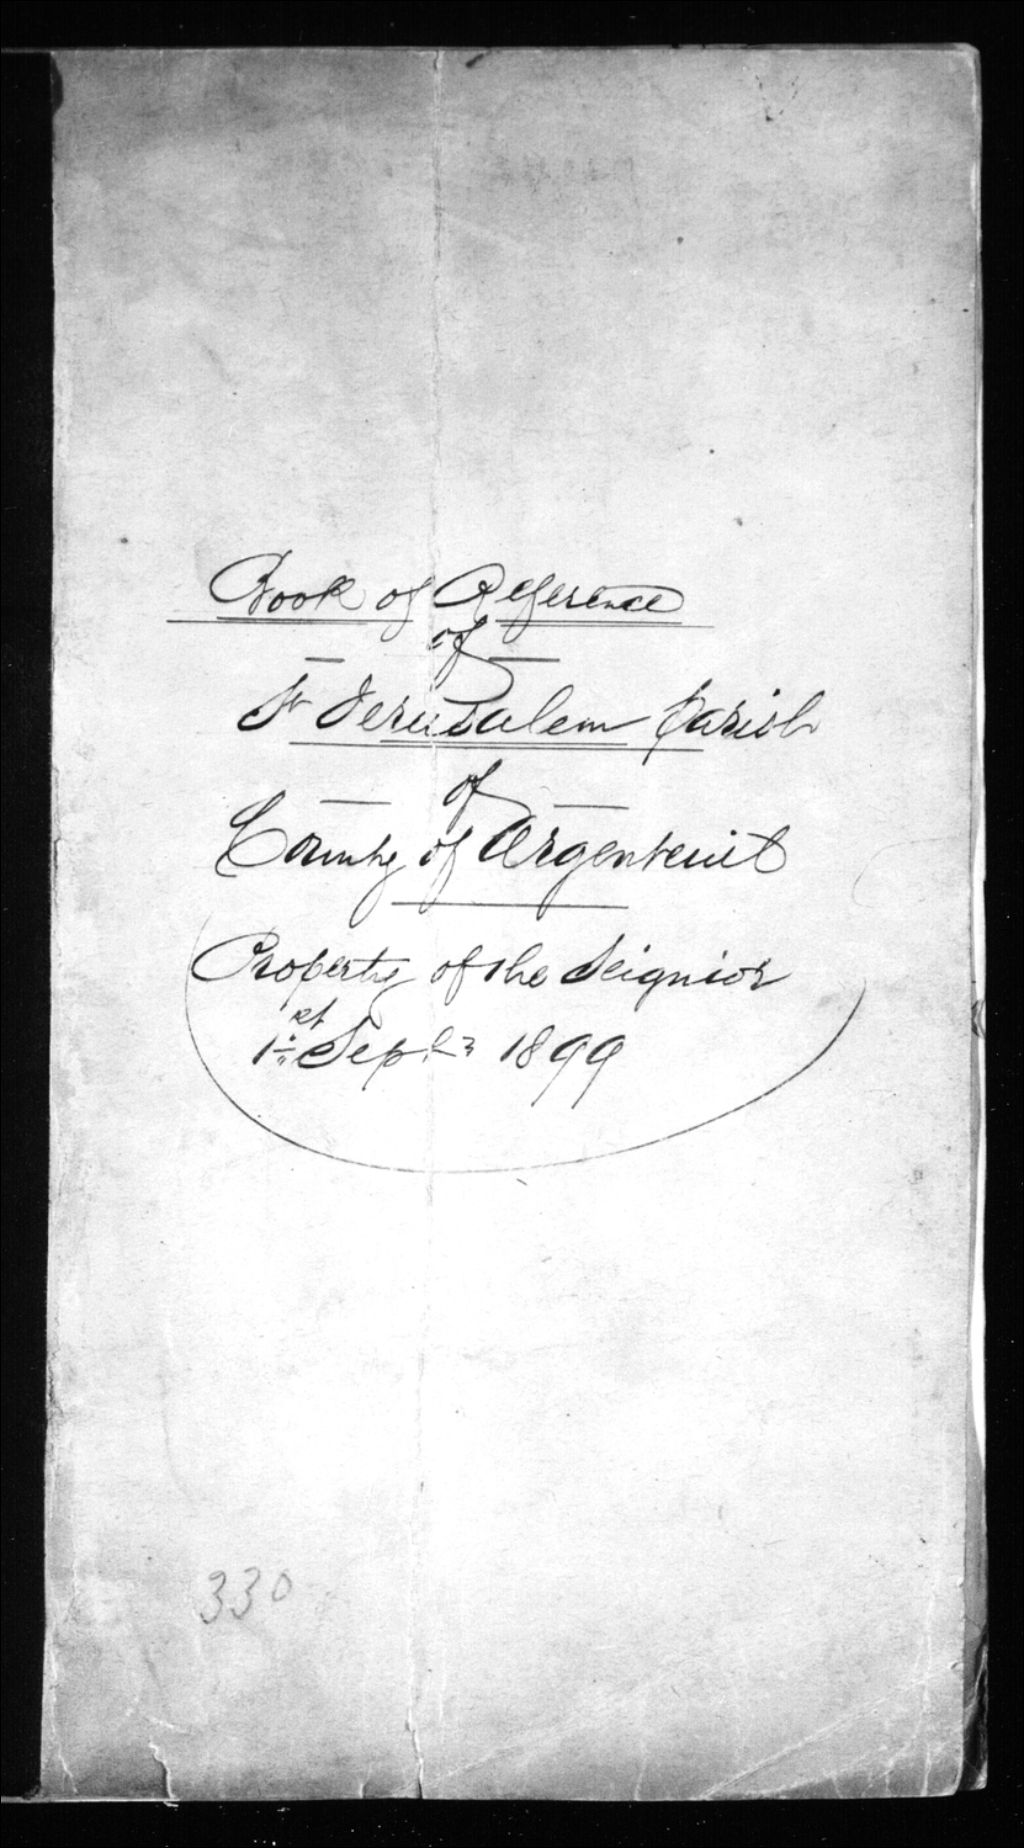 Book of Reference
of
St Jerusalem Parish
of
County of Argenteuil
Property of the Seignior
1st Sept. 1899
330